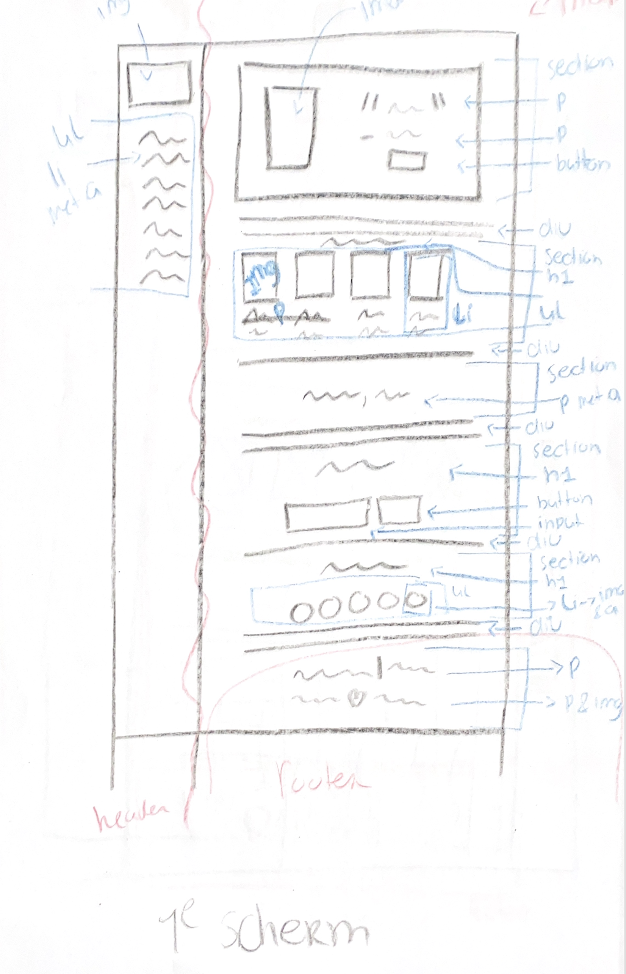 img
section
" "
p
p
button
ul
li
met a
div
section
h1
img
li
ul
div
section
p met a
div
section
h1
button
input
div
section
h1
ul
li → img
& a
div
p
p & img
header
footer
1e scherm